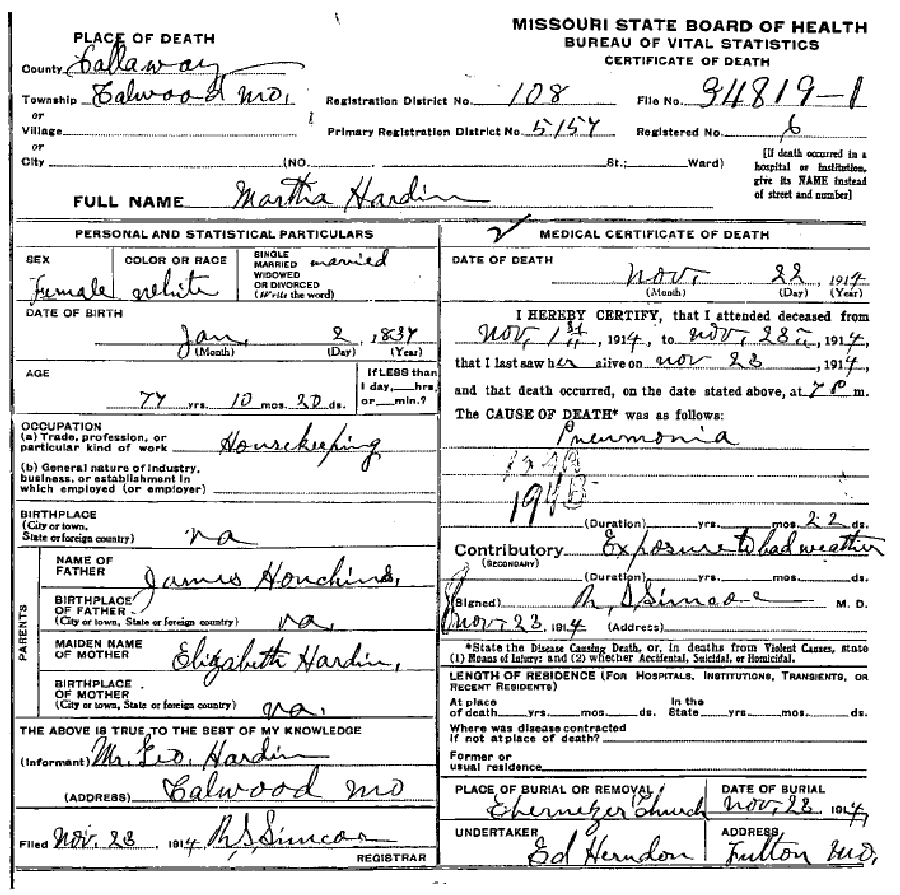 MISSOURI STATE BOARD OF HEALTH
BUREAU OF VITAL STATISTICS
CERTIFICATE OF DEATH
PLACE OF DEATH
County Callaway
Township Calwood Mo. Registration District No. 108 File No. 34819-1
or
Village Primary Registration District No. 5157 Registered No. 6
or
City (NO. St.; Ward)
[If death occurred in a hospital or institution, give its NAME instead of street and number]
FULL NAME Martha Hardin
PERSONAL AND STATISTICAL PARTICULARS
SEX Female
COLOR OR RACE white
SINGLE MARRIED WIDOWED OR DIVORCED (Write the word) married
DATE OF BIRTH
Jan 2, 1837
(Month) (Day) (Year)
AGE
77 yrs. 10 mos. 20 ds.
If LESS than 1 day, hrs. or min.?
OCCUPATION
(a) Trade, profession, or particular kind of work Housekeeping
(b) General nature of industry, business, or establishment in which employed (or employer)
BIRTHPLACE
(City or town, State or foreign country) Va
PARENTS
NAME OF FATHER James Houchins,
BIRTHPLACE OF FATHER
(City or town, State or foreign country) Va,
MAIDEN NAME OF MOTHER Elizabeth Hardin,
BIRTHPLACE OF MOTHER
(City or town, State or foreign country) Va.
THE ABOVE IS TRUE TO THE BEST OF MY KNOWLEDGE
(Informant) Mr. Geo. Hardin
(ADDRESS) Calwood Mo
Filed Nov. 23, 1914 R S Simcoe
REGISTRAR
2 MEDICAL CERTIFICATE OF DEATH
DATE OF DEATH
Nov. 22, 1914
(Month) (Day) (Year)
I HEREBY CERTIFY, that I attended deceased from
Nov, 1st, 1914, to Nov, 23, 1914,
that I last saw her alive on Nov 23, 1914,
and that death occurred, on the date stated above, at 7 P m.
The CAUSE OF DEATH* was as follows:
Pneumonia
(Duration) yrs. mos. 22 ds.
Contributory Exposure to bad weather
(SECONDARY)
(Duration) yrs. mos. ds.
(Signed) R S Simcoe M. D.
Nov. 23, 1914 (Address)
*State the Disease Causing Death, or, in deaths from Violent Causes, state
(1) Means of Injury; and (2) whether Accidental, Suicidal, or Homicidal.
LENGTH OF RESIDENCE (FOR HOSPITALS, INSTITUTIONS, TRANSIENTS, OR RECENT RESIDENTS)
At place of death yrs. mos. ds. In the State yrs. mos. ds.
Where was disease contracted if not at place of death?
Former or usual residence
PLACE OF BURIAL OR REMOVAL Ebernezer Church
DATE OF BURIAL Nov. 23, 1914,
UNDERTAKER Ed Herndon
ADDRESS, Fulton Mo.